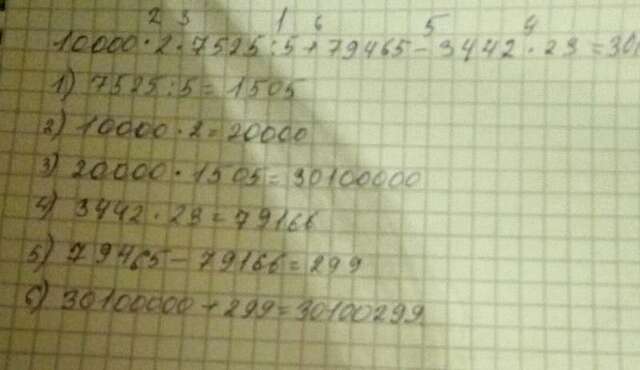 2 3 1 6 5 4
10000·2·7525:5+79465-3442·23=301
1) 7525:5=1505
2) 10000·2=20000
3) 20000·1505=30100000
4) 3442·23=79166
5) 79465-79166=299
6) 30100000+299=30100299